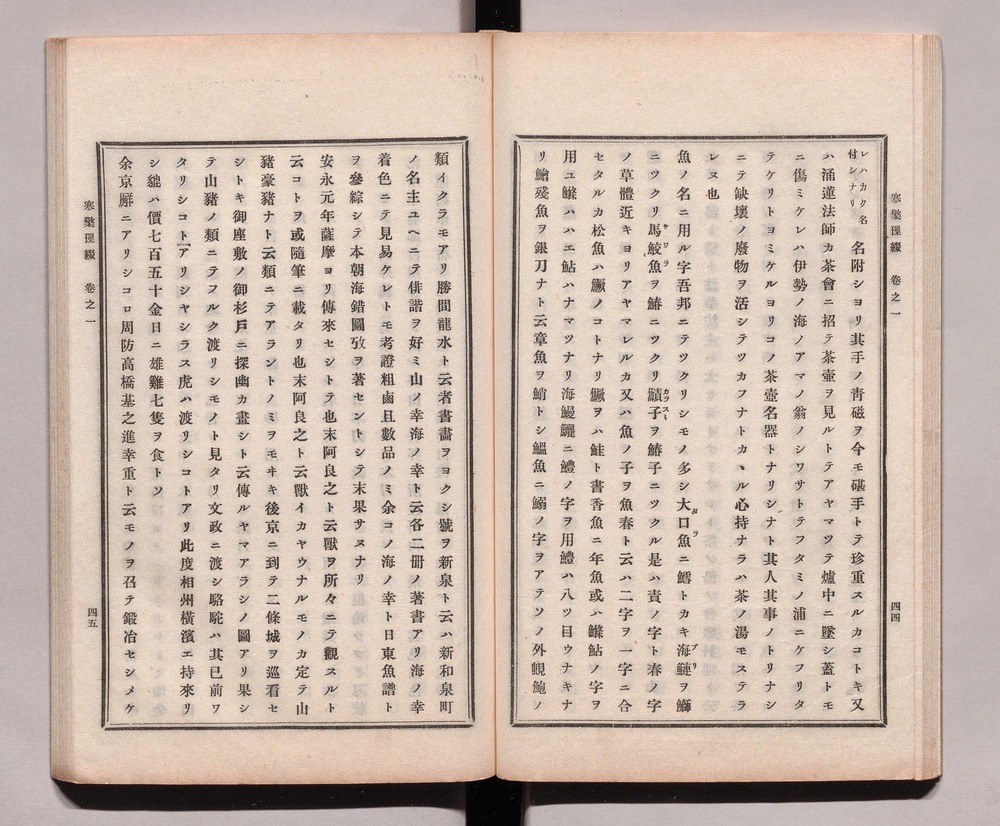 寒檠璅綴 卷之一
四四
レハカク名
付シナリ 名附シヨリ其手ノ靑磁ヲ今モ碪手トテ珍重スルカコトキ又
ハ涌蓮法師カ茶會ニ招テ茶壷ヲ見ルトテアヤマツテ爐中ニ墜シ蓋トモ
ニ傷ミケレハ伊勢ノ海ノアマノ翁ノシワサトテフタミノ浦ニケフリタ
テケリトヨミケルヨリコノ茶壷名器トナリシナト其人其事ノトリナシ
ニテ缺壞ノ廢物ヲ活シテツカフナトカヽル心持ナラハ茶ノ湯モステラ
レヌ也
魚ノ名ニ用ル字吾邦ニテツクリシモノ多シ大口魚ニ鱈トカキ海鰱ヲ鰤
タラ
ブリ
ニツクリ馬鮫魚ヲ鰆ニツクリ鰿子ヲ鰆子ニツクル是ハ責ノ字ト春ノ字
サワラ
カヅスミ
ノ草體近キヨリアヤマレルカ又ハ魚ノ子ヲ魚春ト云ハ二字ヲ一字ニ合
セタルカ松魚ハ鱖ノコトナリ鱖ヲハ鮭ト書香魚ニ年魚或ハ鯸鮎ノ字ヲ
用ユ鯸ハハエ鮎ハナマツナリ海鰻鱺ニ鱧ノ字ヲ用鱧ハ八ツ目ウナキナ
リ鱠殘魚ヲ銀刀ナト云章魚ヲ鮹トシ鰮魚ニ鰯ノ字ヲアテソノ外蜆鮑ノ
類イクラモアリ勝間龍水ト云者書畵ヲヨクシ號ヲ新泉ト云ハ新和泉町
ノ名主ユヘニテ俳諧ヲ好ミ山ノ幸海ノ幸ト云各二册ノ著書アリ海ノ幸
着色ニテ見易ケレトモ考證粗鹵且數品ノミ余コノ海ノ幸ト日東魚譜ト
ヲ參綜シテ本朝海錯圖攷ヲ著セントシテ未果サヌナリ
安永元年薩摩ヨリ傳來セシトテ也末阿良之ト云獸ヲ所々ニテ觀スルト
云コトヲ或隨筆ニ載タリ也末阿良之ト云獸イカヤウナルモノカ定テ山
豬豪豬ナト云類ニテアラントノミヲモヰキ後京ニ到テ二條城ヲ巡看セ
シトキ御座敷ノ御杉戸ニ探幽カ畫シト云傳ルヤマアラシノ圖アリ果シ
テ山豬ノ類ニテフルク渡リシモノト見タリ文政ニ渡シ駱駝ハ其已前ワ
タリシコトアリシヤシラス虎ハ渡リシコトアリ此度相州橫濱エ持來リ
シ貔ハ價七百五十金日ニ雄雞七隻ヲ食トソ
余京廨ニアリシコロ周防高橋基之進幸重ト云モノヲ召テ鍛冶セシメケ
寒檠璅綴 卷之一
四五